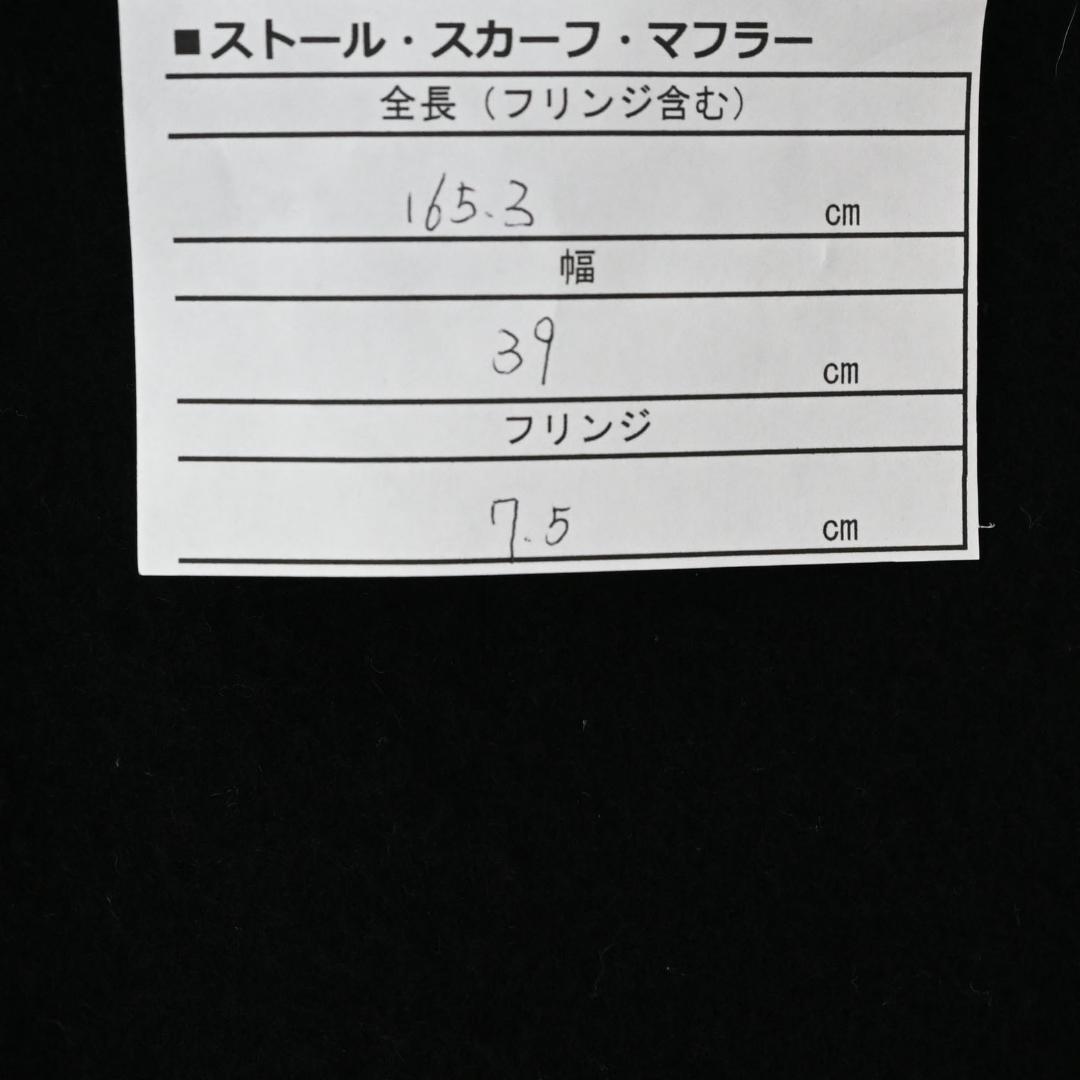 ■ストール・スカーフ・マフラー
全長（フリンジ含む）
165.3 cm
幅
39 cm
フリンジ
7.5 cm